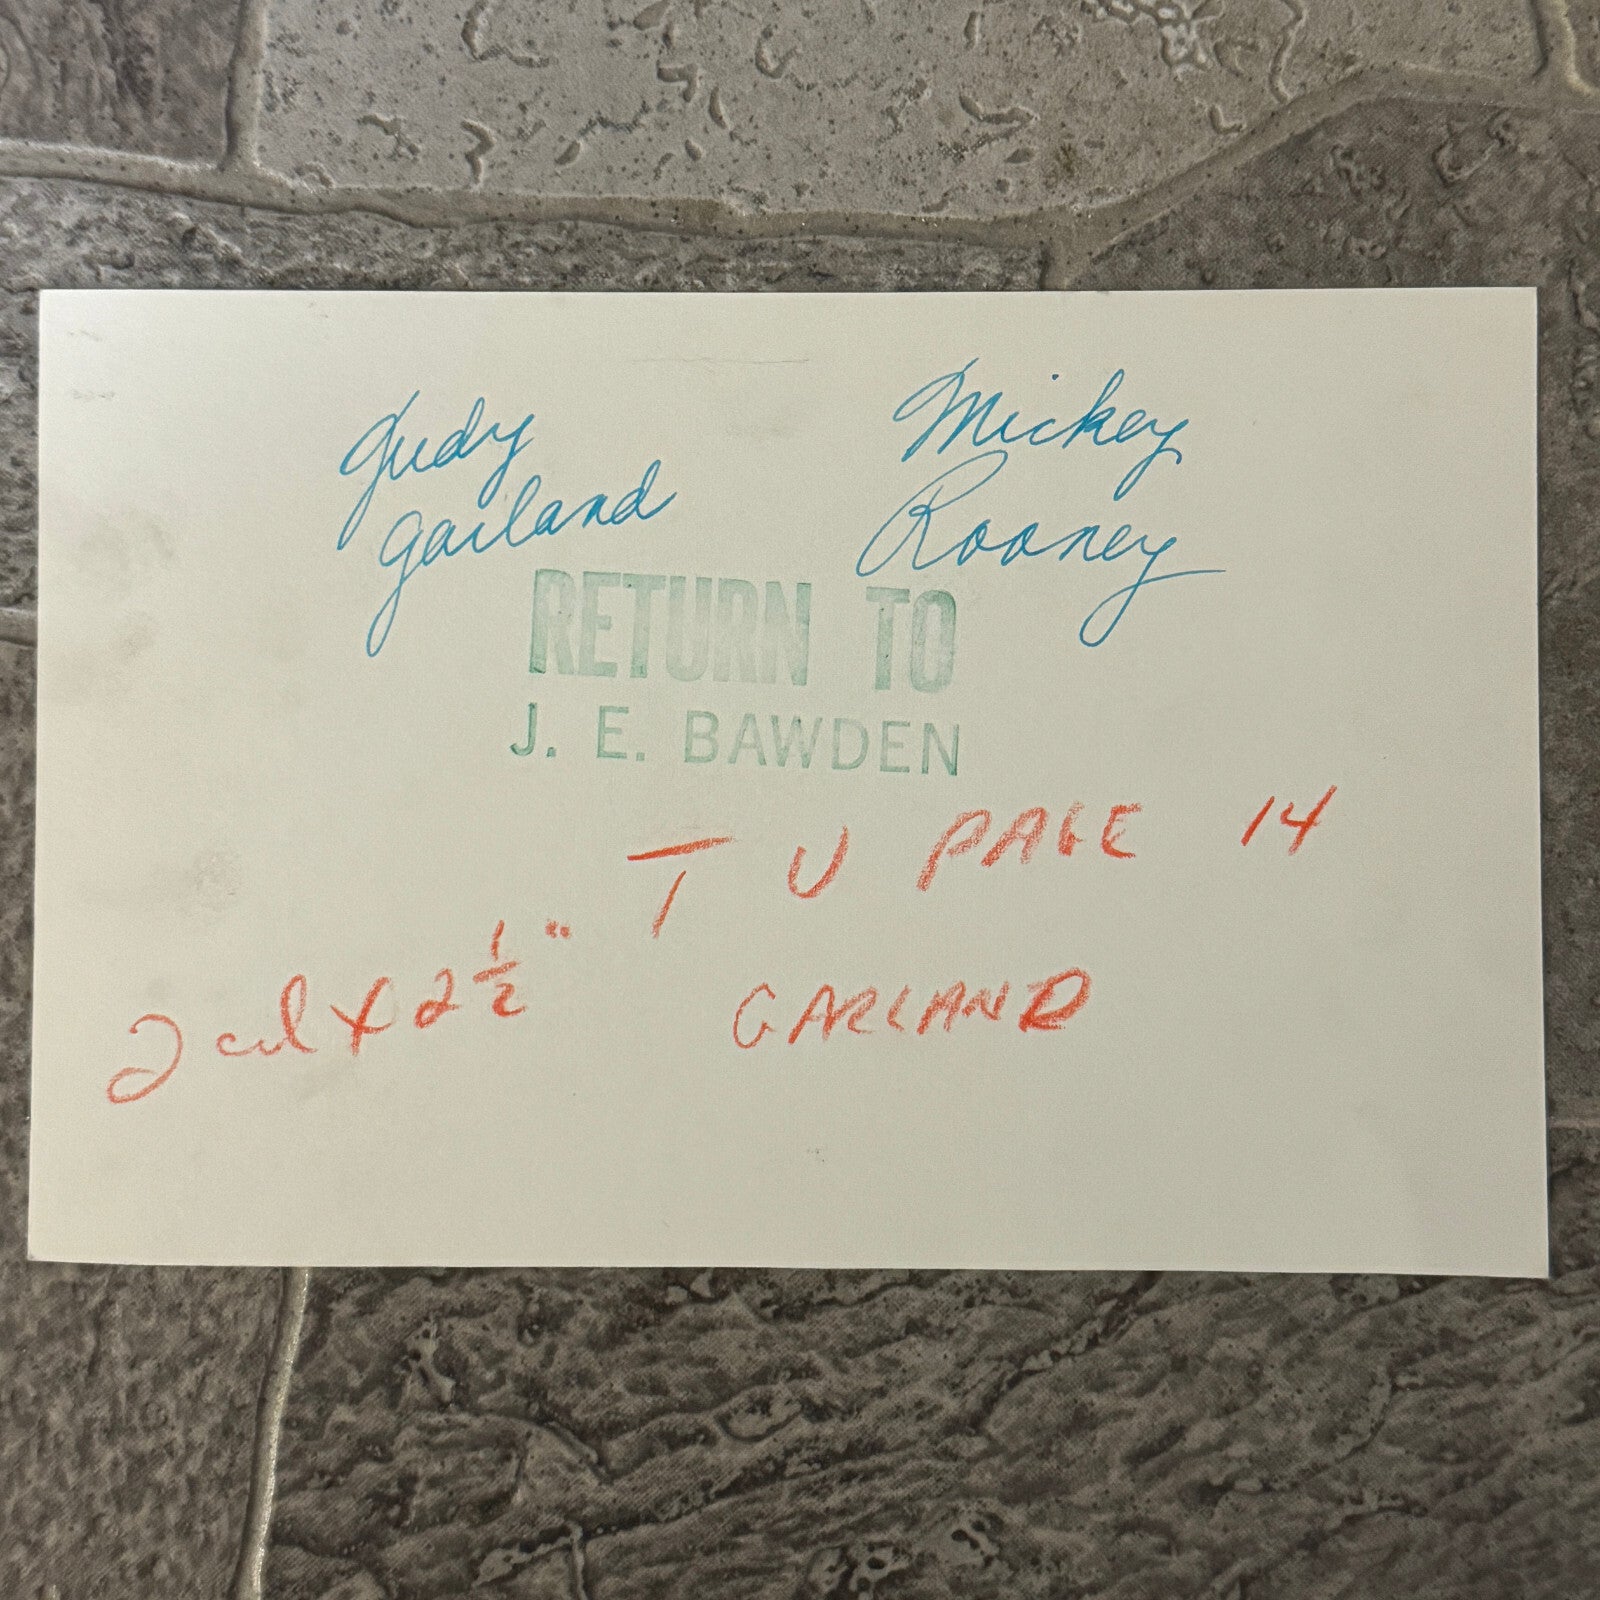 Judy
Garland
Mickey
Rooney
RETURN TO
J. E. BAWDEN
T U PAGE 14
2 col X 2 1/2"
GARLAND